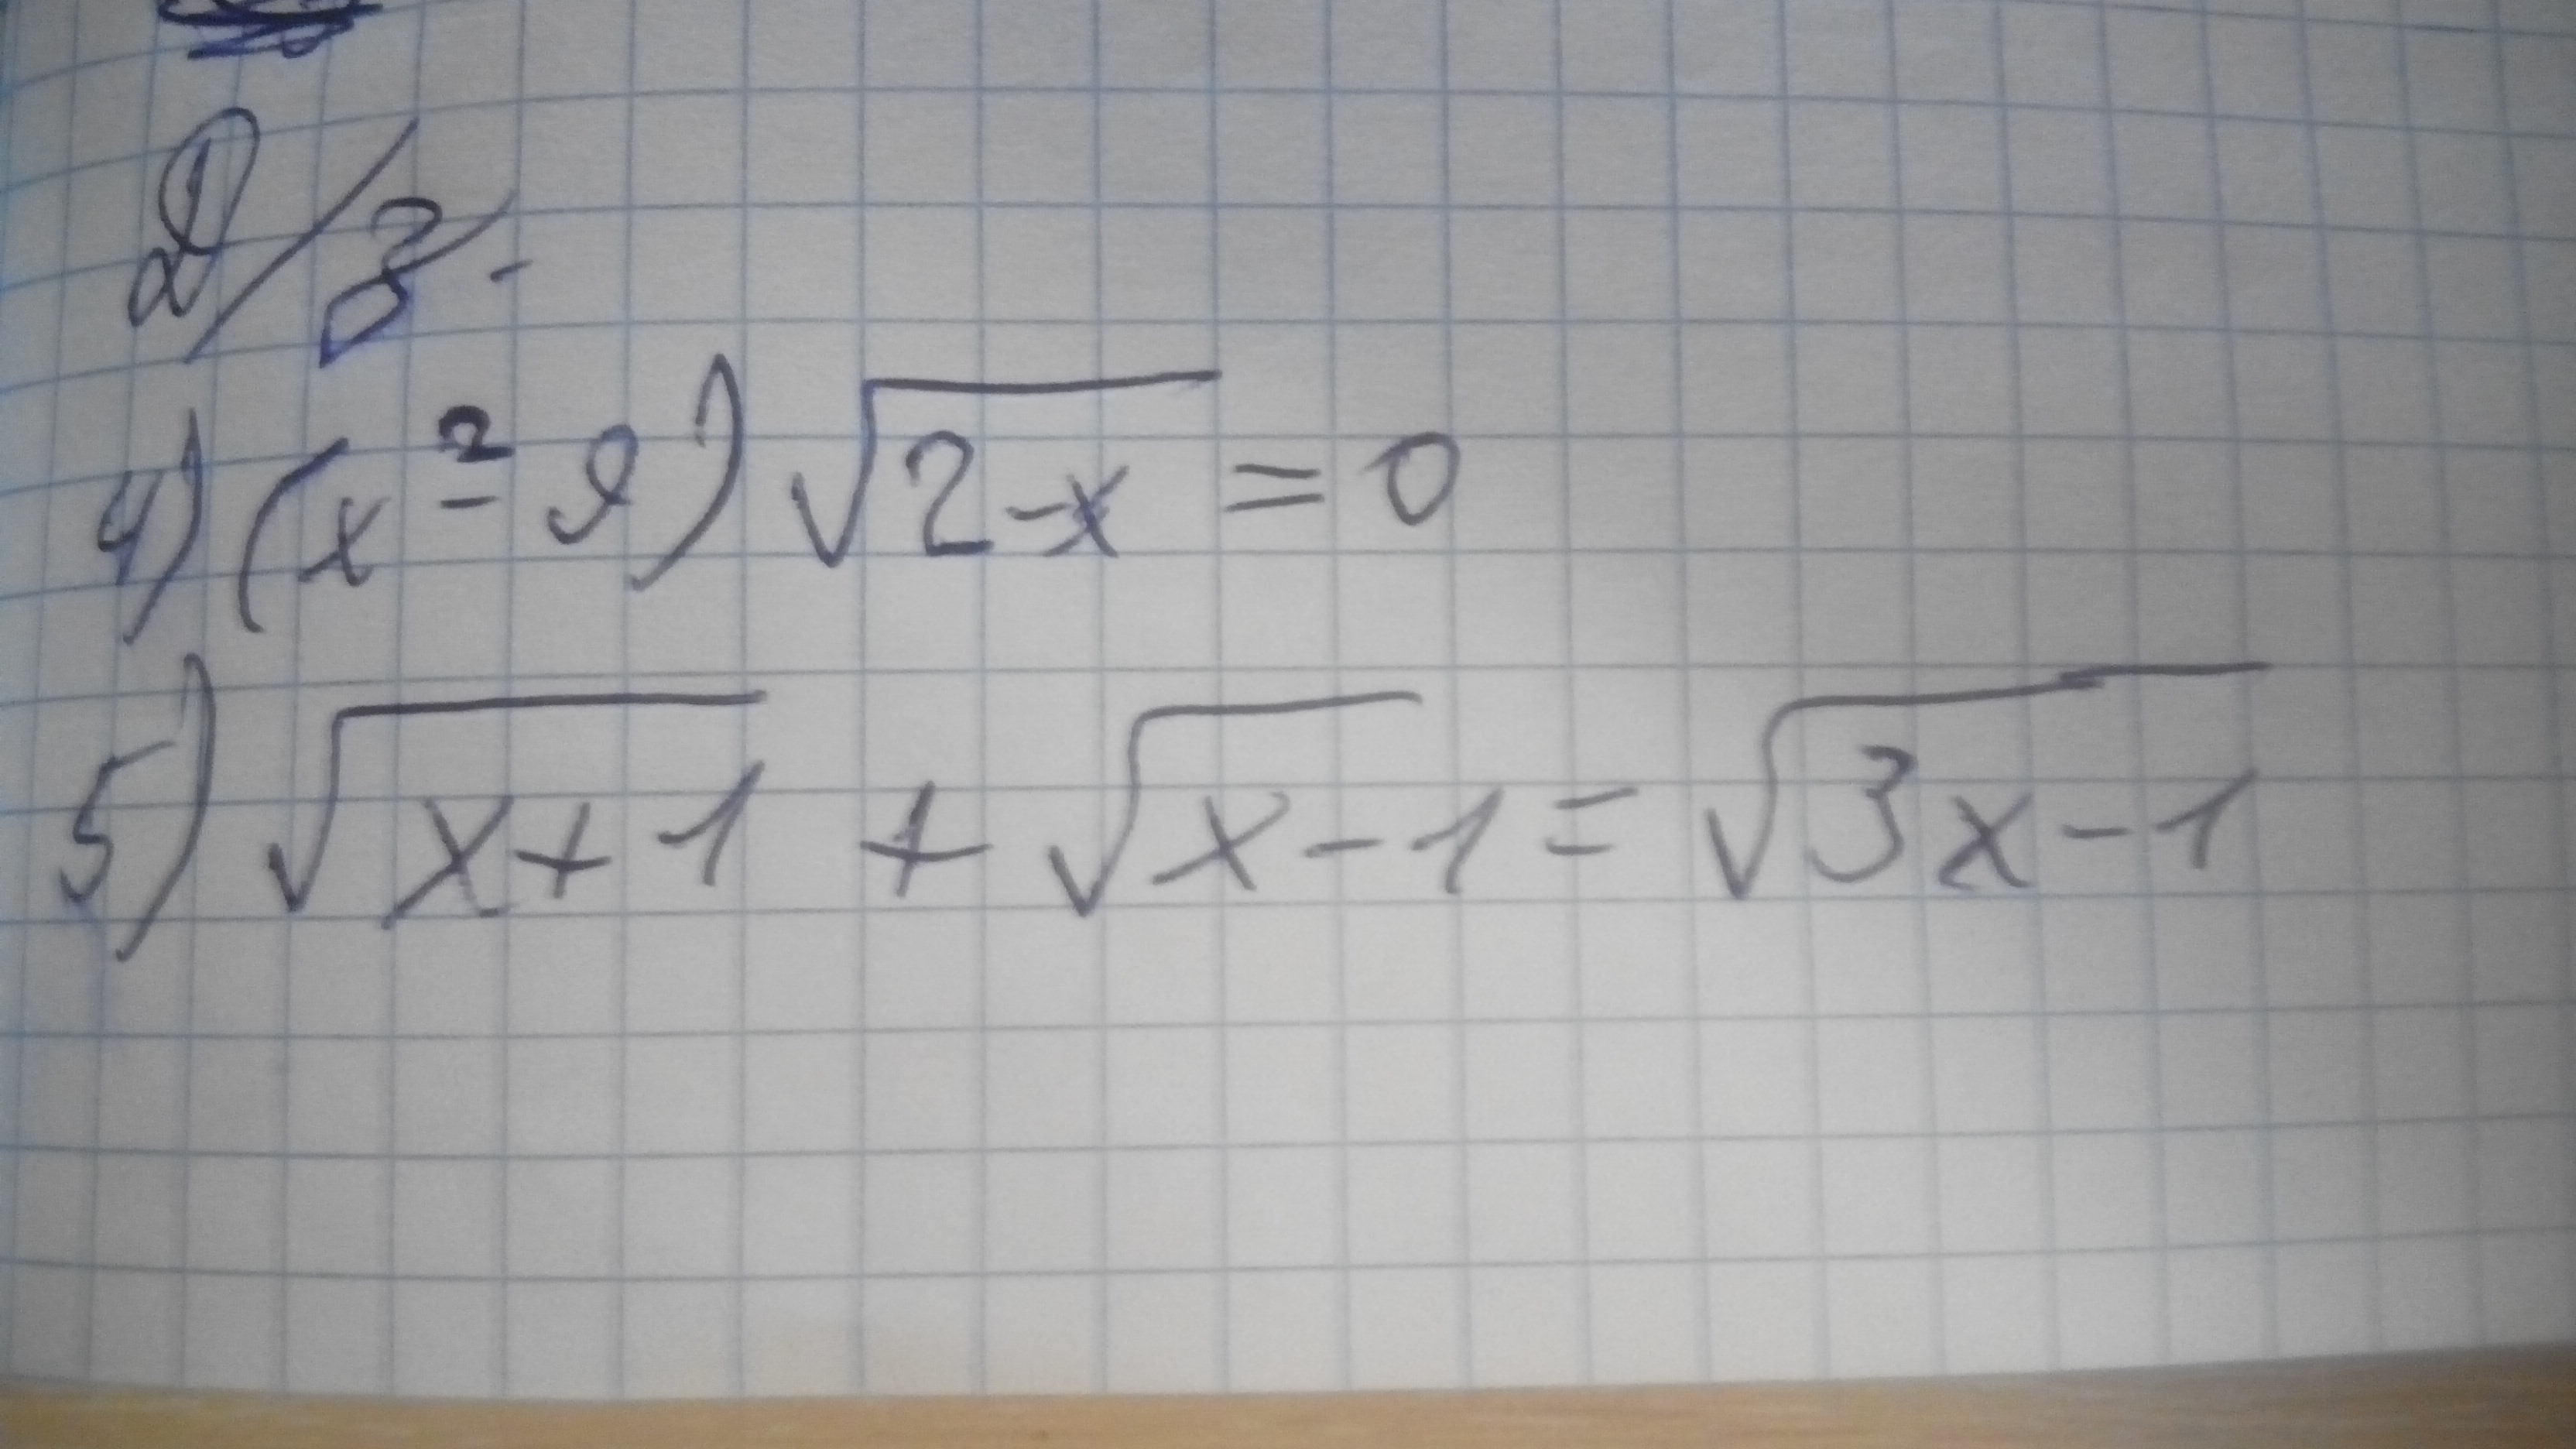 Д/З-
4) (x² - 9) √(2-x) = 0
5) √(x+1) + √(x-1) = √(3x-1)